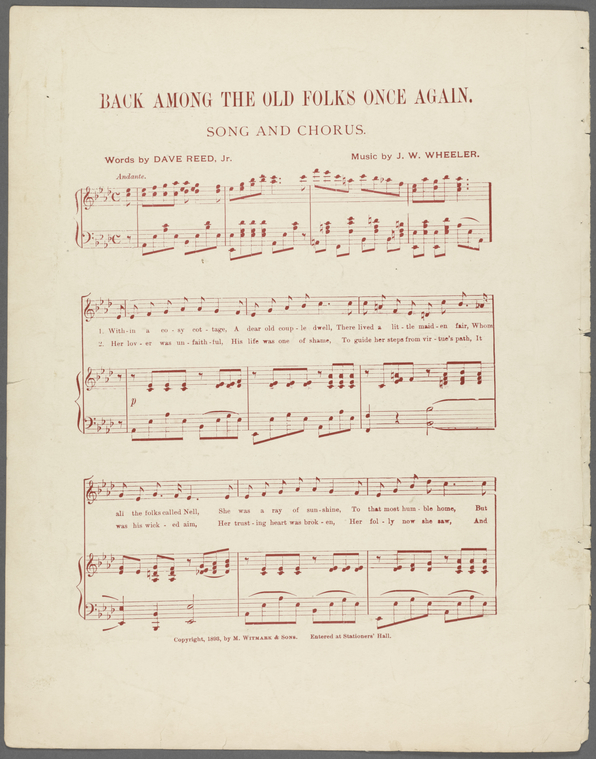 BACK AMONG THE OLD FOLKS ONCE AGAIN.
SONG AND CHORUS.
Words by DAVE REED, Jr. Music by J. W. WHEELER.
Andante.
1
1. With-in a co-sy cot-tage, A dear old coup-le dwell, There lived a lit-tle maid-en fair, Whom
2. Her lov-er was un-faith-ful, His life was one of shame, To guide her steps from vir-tue's path, It
p
all the folks called Nell, She was a ray of sun-shine, To that most hum-ble home, But
was his wick-ed aim, Her trust-ing heart was brok-en, Her fol-ly now she saw, And
Copyright, 1895, by M. WITMARK & SONS. Entered at Stationers' Hall.